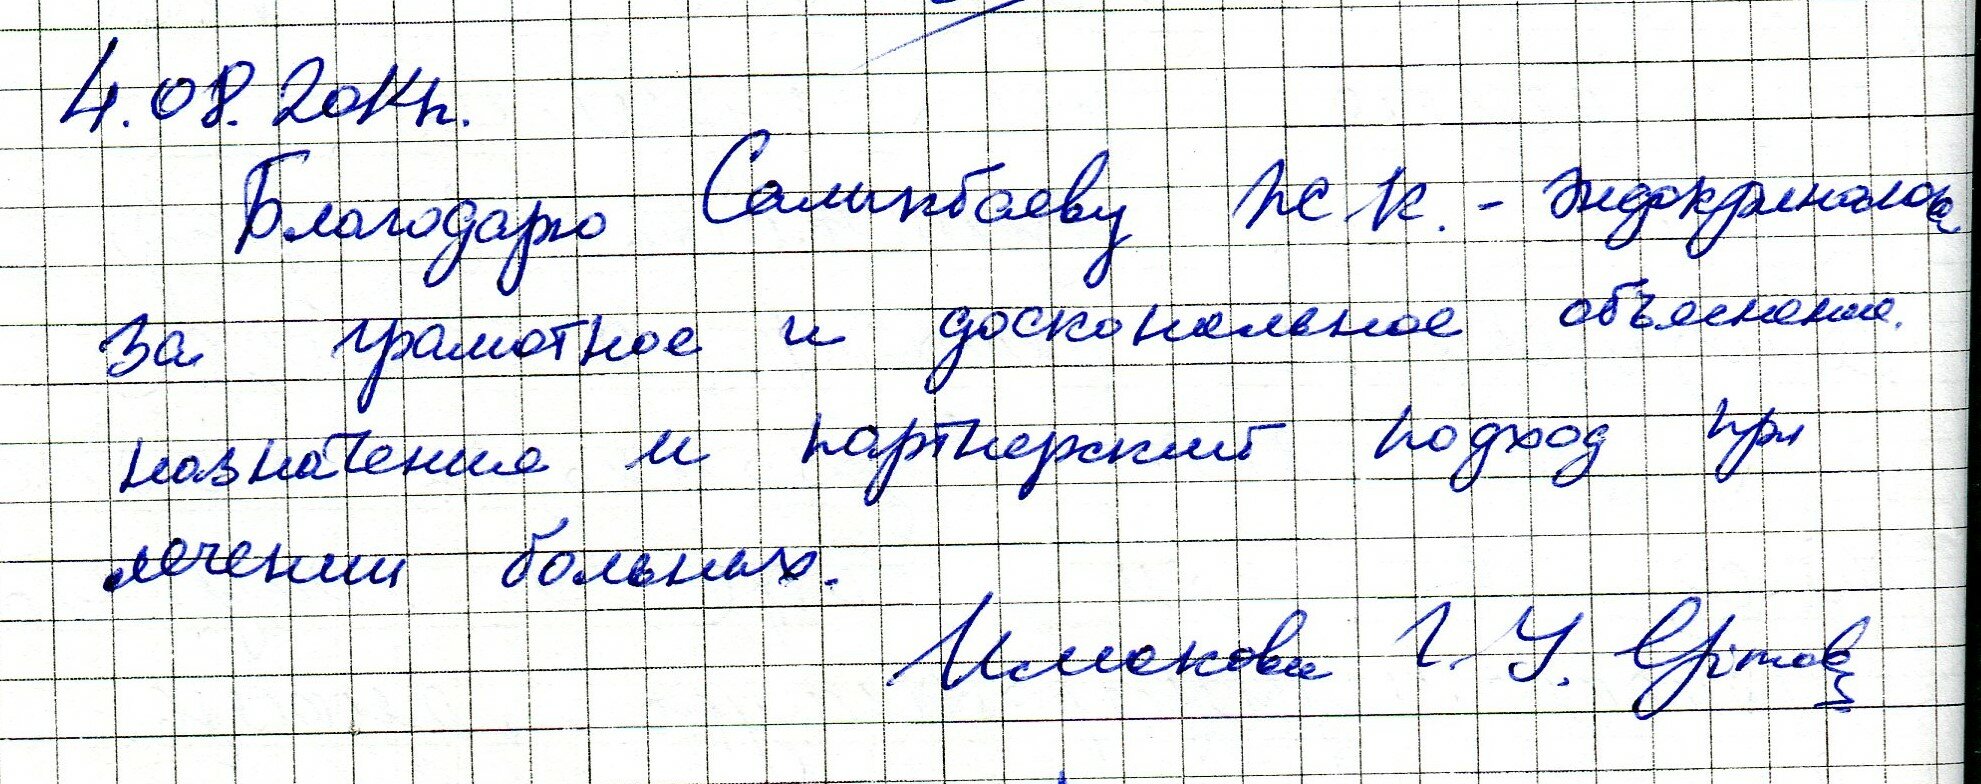 4.08.2014г.
Благодарю Салыкбаеву Ж К. - эндокринолога
за грамотное и доскональное объяснение.
назначение и партнерский подход при
лечении больных.
Имакова Г. У.